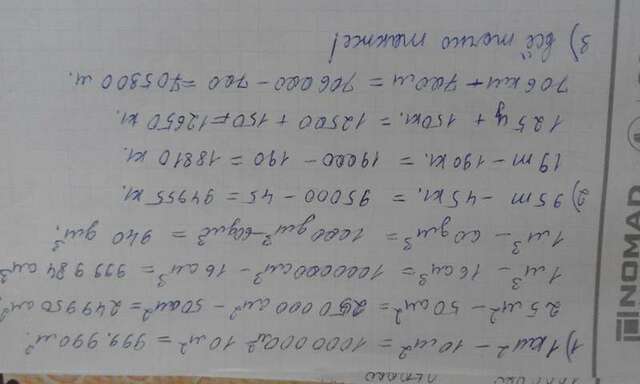 1) 1км² - 10м² = 1000000м² 10м² = 999.990м².
25м² - 50см² = 250000см² - 50см² = 249950см².
1м³ - 16см³ = 1000000см³ - 16см³ = 999984см³
1м³ - 60дм³ = 1000дм³ - 60дм³ = 940 дм³.
2) 95т - 45кг. = 95000 - 45 = 94955 кг.
19т - 190кг. = 19000 - 190 = 18810 кг.
125ц + 150кг. = 12500 + 150 = 12650 кг.
706км + 700м = 706000 - 700 = 705300 м.
3) всё точно также!
NOMAD